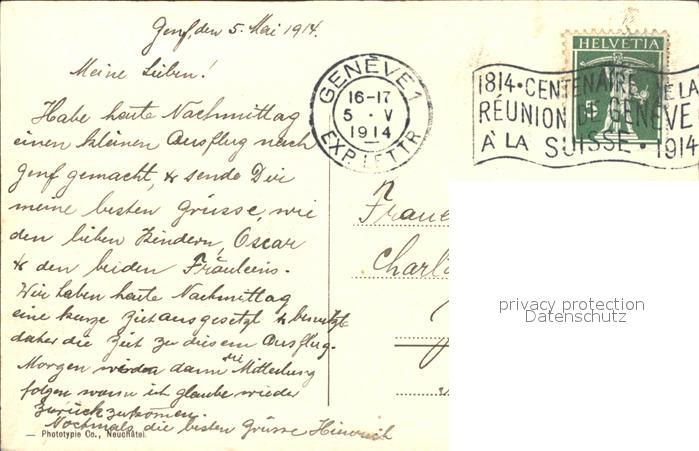 Genf, den 5. Mai 1914.
Meine Lieben!
Habe heute Nachmittag
einen kleinen Ausflug nach
Genf gemacht, & sende Dir
meine besten Grüsse, wie
den lieben Kindern, Oscar
& den beiden Fräuleins.
Wir haben heute Nachmittag
eine kurze Zeit ausgesetzt & benutzte
daher die Zeit zu diesem Ausflug.
Morgen werden dann die Mitteilung
folgen wann ich glaube wieder
zurückzukommen.
Nochmals die besten Grüsse Heinrich
Phototypie Co., Neuchâtel
GENÈVE 1
16-17
5 · V
1914
EXP. LETTR.
HELVETIA
5
1814 · CENTENAIRE DE LA
RÉUNION DE GENÈVE
À LA SUISSE · 1914
privacy protection
Datenschutz